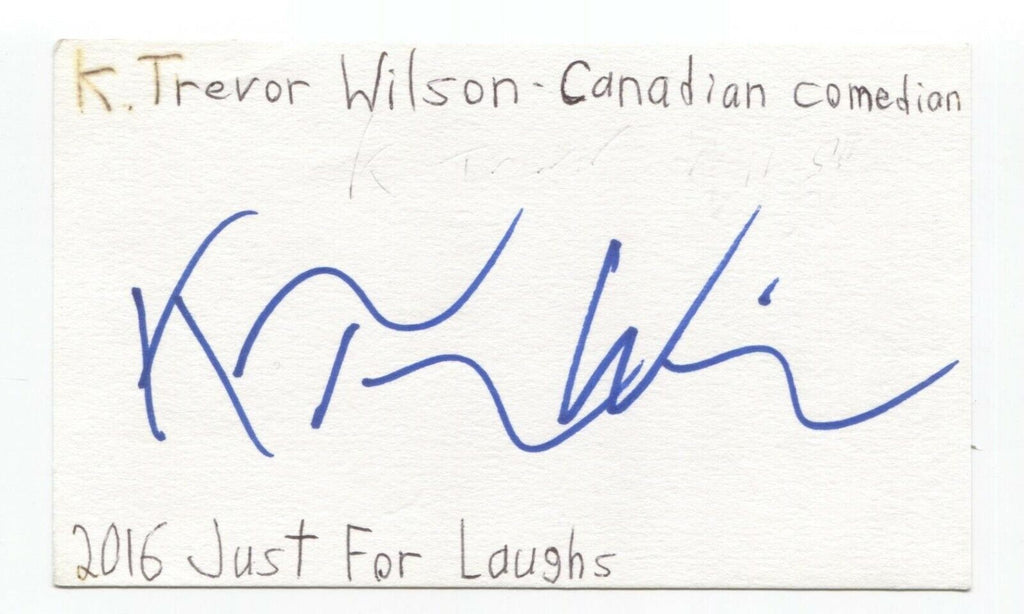 K. Trevor Wilson - Canadian comedian
2016 Just For Laughs